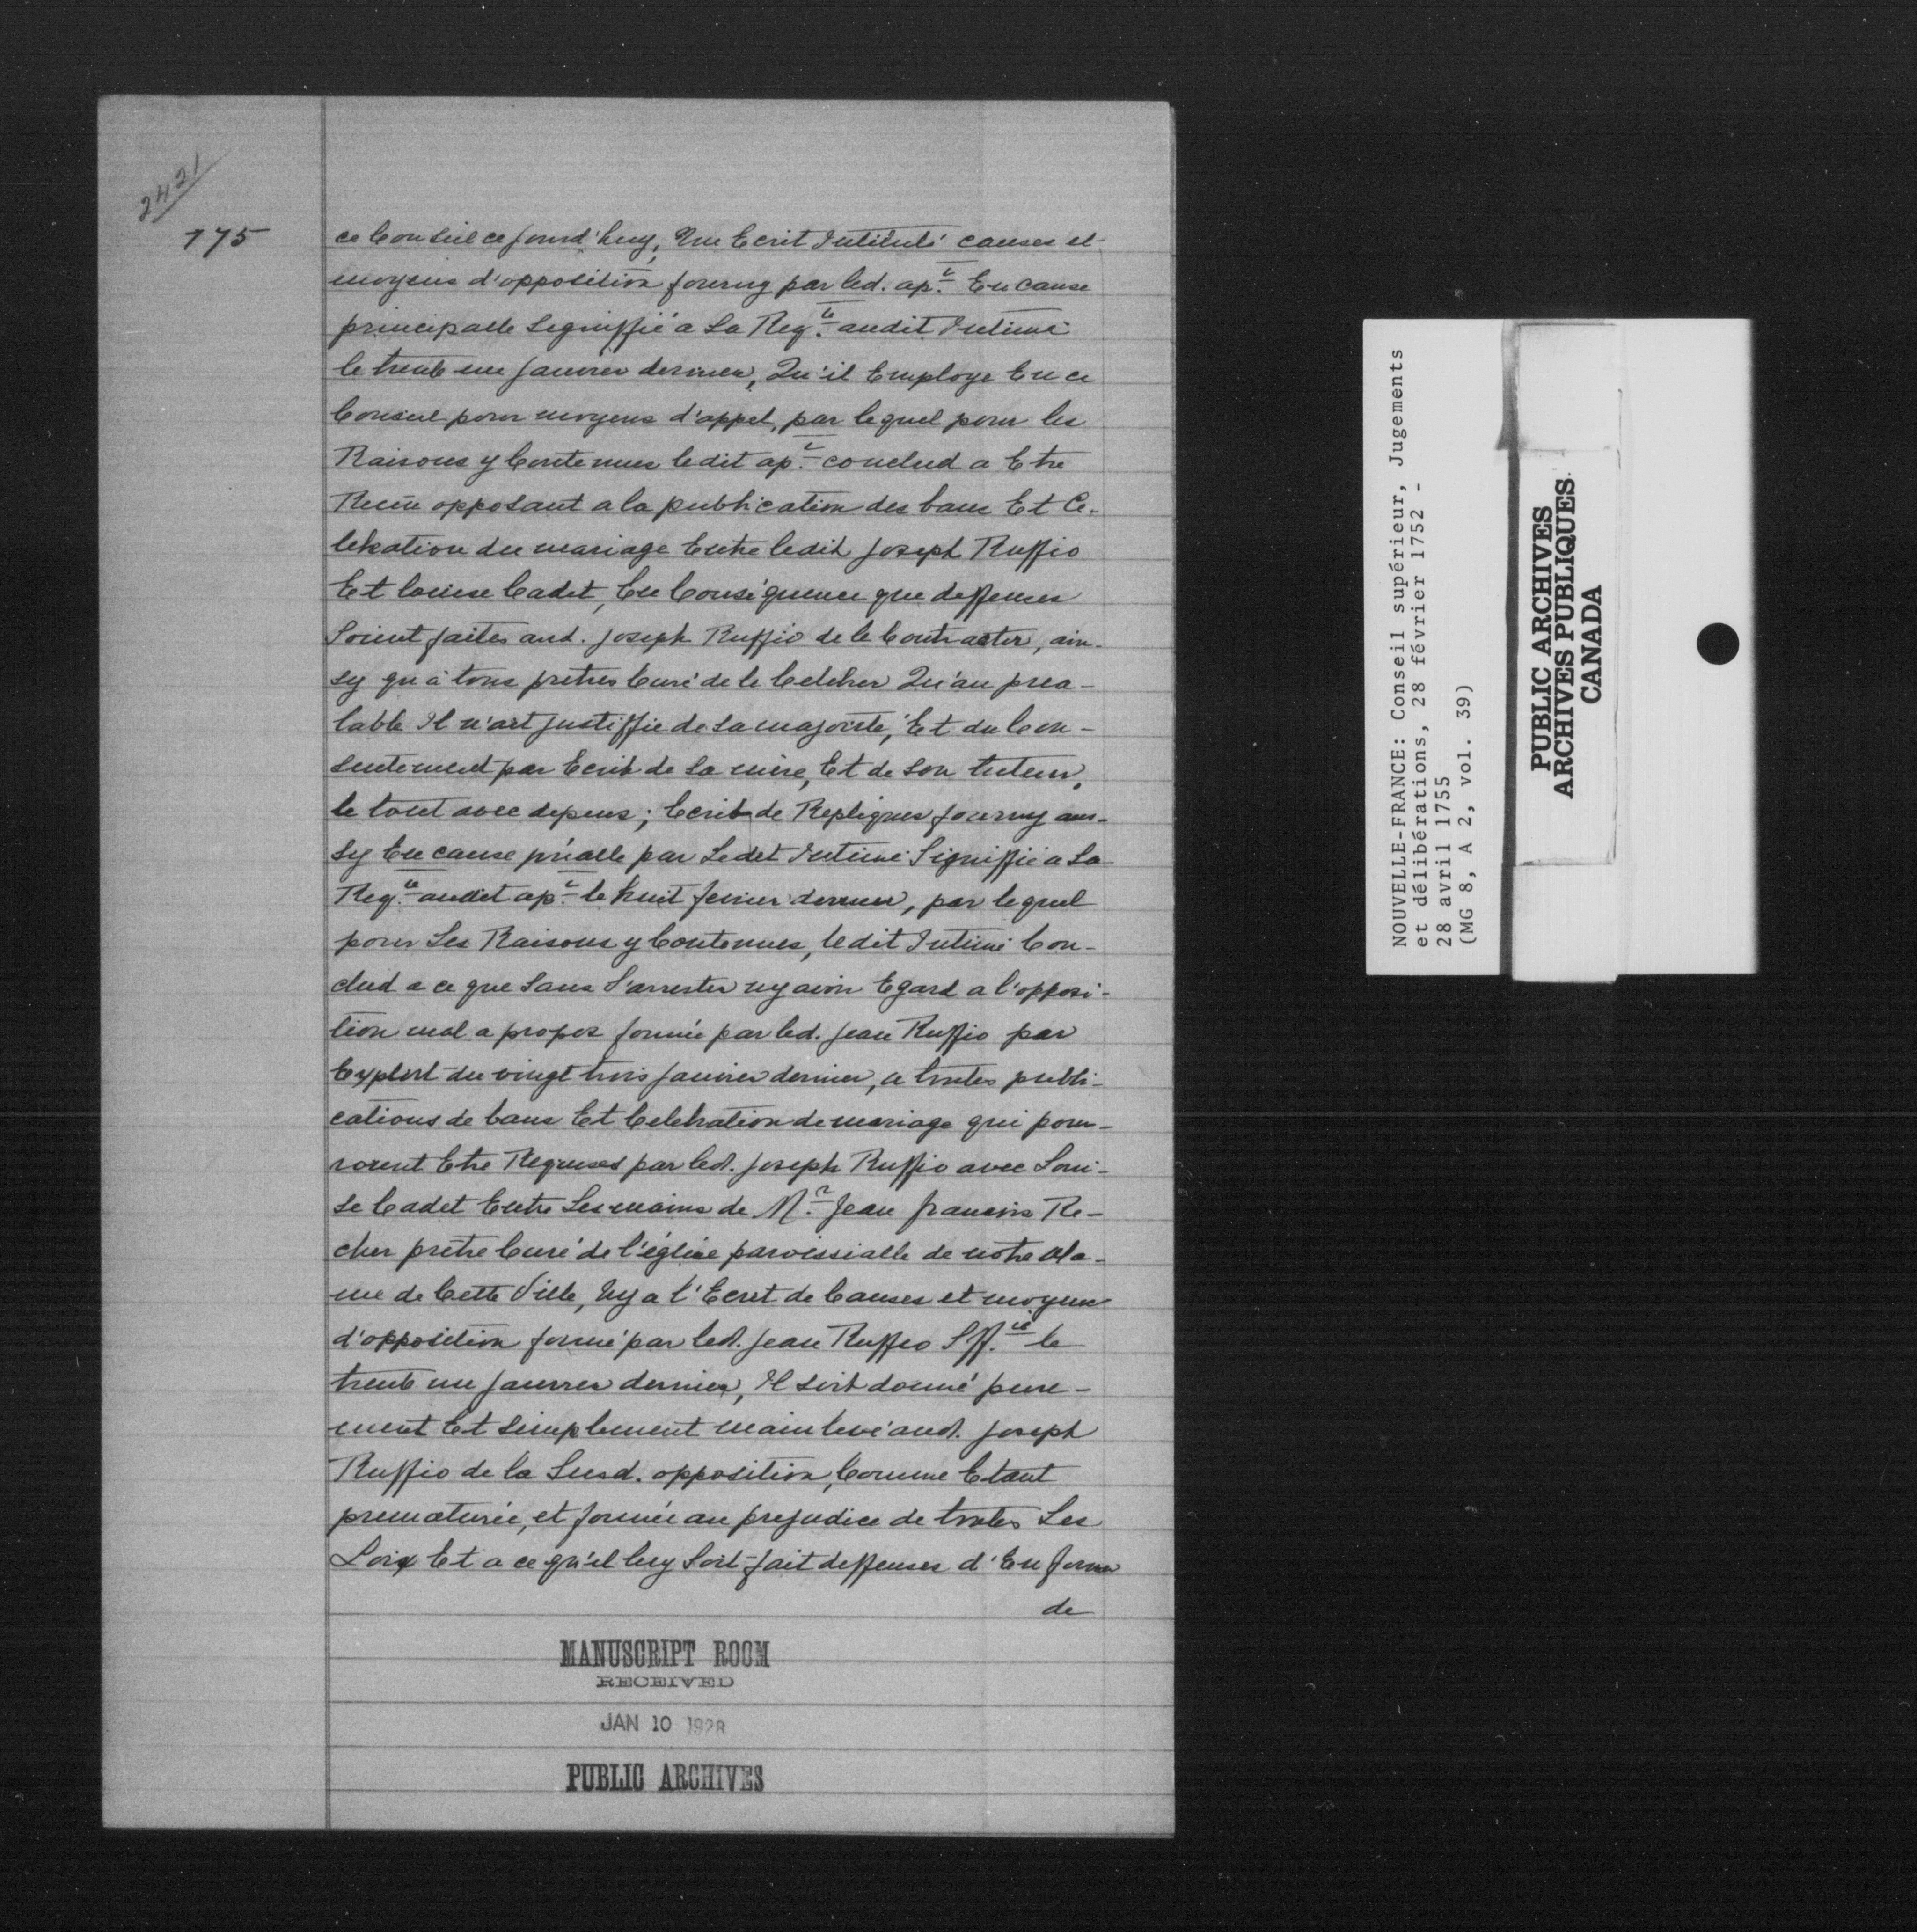 2421
775
ce Conseil ce jourd'huy, Une Ecrit Intitulé causes et
moyens d'opposition fourny par led. ap.t En cause
principalle Signiffié a La Req.te audit Intimé
le trente un Janvier dernier, Qu'il Employe En ce
Conseil pour moyens d'appel, par lequel pour les
Raisons y Contenues ledit ap.t conclud a Etre
Recëu opposant a la publication des bans Et Ce-
lebration du mariage Entre ledit Joseph Ruffio
Et louise Cadet, En Conséquence que deffenses
Soient faites aud. Joseph Ruffio de le Contracter, ain-
sy qu'à tous pretres Curé de le Celebrer Qu'au prea-
lable Il n'ait justiffie de sa majorité, Et du Con-
sentement par Ecrit de sa mère, Et de son tuteur,
le tout avec depens; Ecrit de Repliques fourny aus-
sy En cause p'ríalle par Ledit Intimé Signiffié a La
Req.te audit ap.t le huit fevrier dernier, par lequel
pour Les Raisons y Contenues, ledit Intimé Con-
clud a ce que Sans S'arrester ny avoir Egard a l'opposi-
tion mal a propos formée par led. Jean Ruffio par
Exploit du vingt trois Janvier dernier, a toutes publi-
cations de bans Et Celebration de mariage qui pour-
roient Etre Requises par led. Joseph Ruffio avec Loui-
se Cadet Entre Les mains de M.r Jean francois Re-
cher pretre Curé de l'église paroissialle de notre da-
me de Cette Ville, Ny a l'Ecrit de Causes et moyens
d'opposition formé par led. Jean Ruffio Sff.ié le
trente un Janvier dernier, Il soit donné pure-
ment Et simplement main levé aud. Joseph
Ruffio de la Susd. opposition, Comme Etant
prematurée, et formée au prejudice de toutes Les
Loix Et a ce qu'il luy Soit fait deffenses d'En former
de
MANUSCRIPT ROOM
RECEIVED
JAN 10 1928
PUBLIC ARCHIVES
NOUVELLE-FRANCE: Conseil supérieur, Jugements
et délibérations, 28 février 1752 -
28 avril 1755
(MG 8, A 2, vol. 39)
PUBLIC ARCHIVES
ARCHIVES PUBLIQUES
CANADA